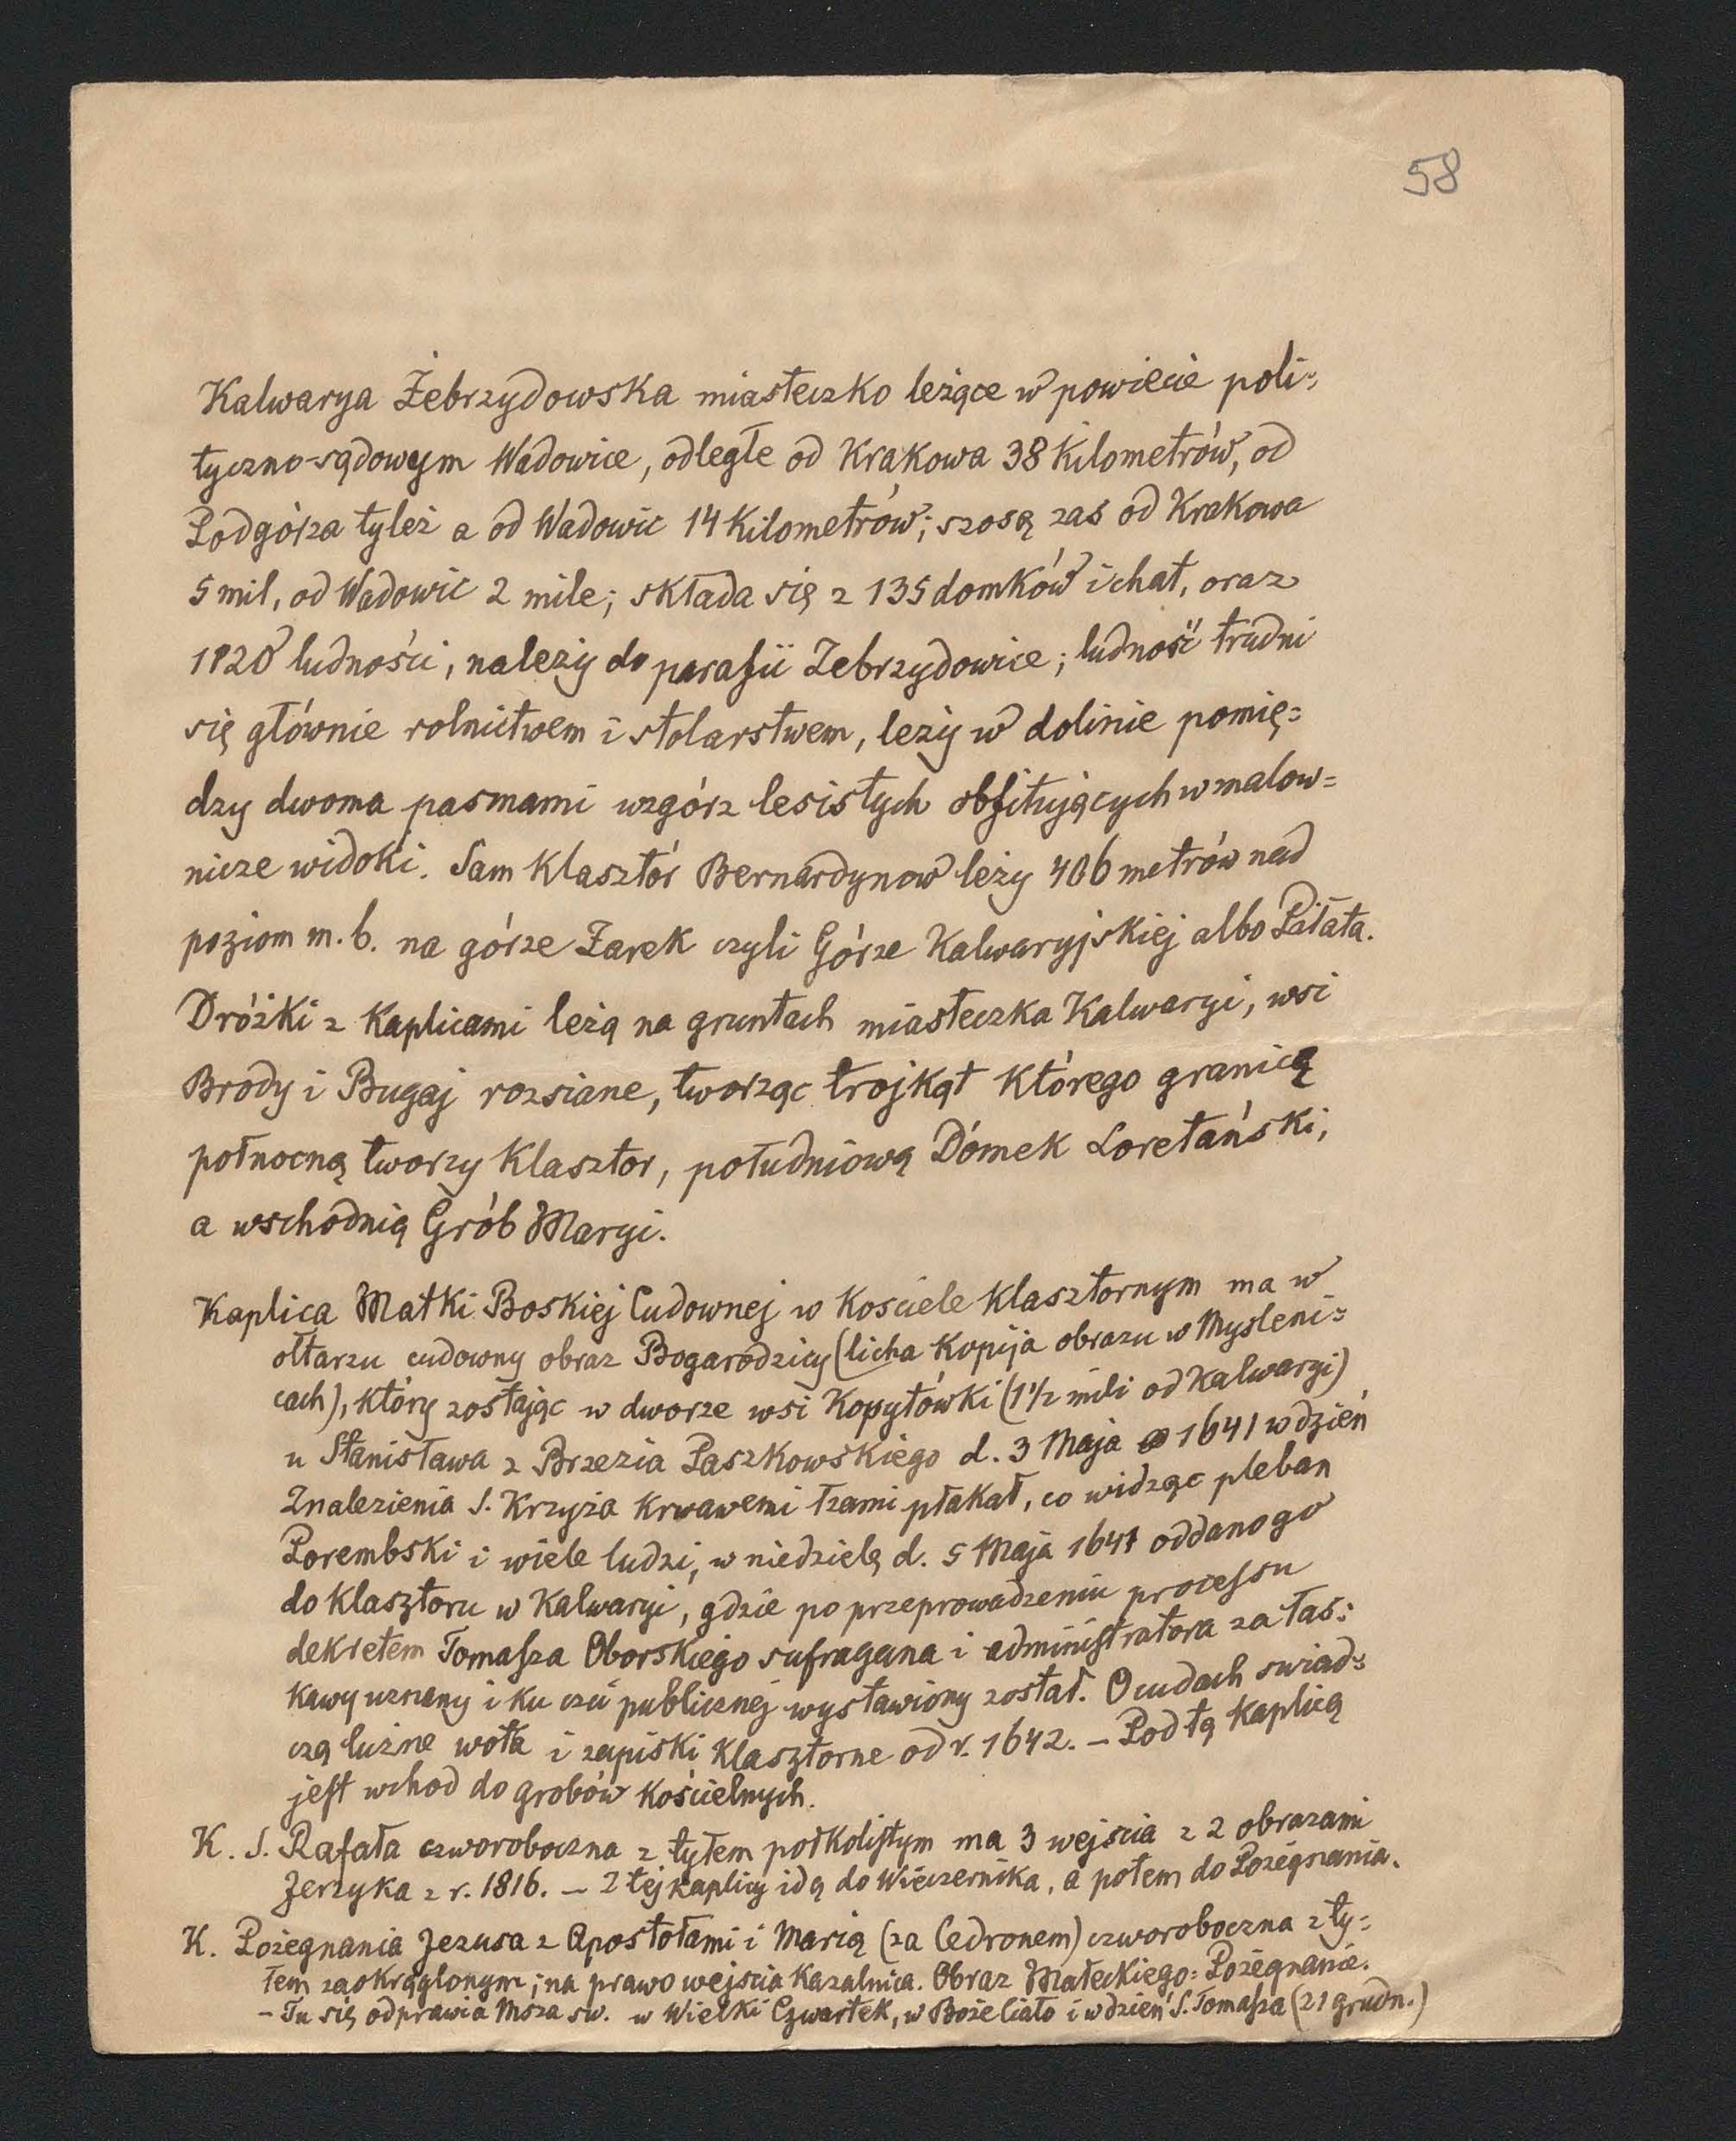 58
Kalwarya Żebrzydowska miasteczko leżące w powiecie poli=
tyczno-sądowym Wadowice, odległe od Krakowa 38 Kilometrów, od
Podgórza tyleż a od Wadowic 14 Kilometrów; szosą zaś od Krakowa
5 mil, od Wadowic 2 mile; składa się z 135 domków i chat, oraz
1820 ludności, należy do parafii Zebrzydowice; ludność trudni
się głównie rolnictwem i stolarstwem, leży w dolinie pomię=
dzy dwoma pasmami wzgórz lesistych obfitujących w malow=
nicze widoki. Sam Klasztór Bernardynow leży 406 metrów nad
poziom m. b. na górze Żarek czyli Górze Kalwaryjskiej albo Piłata.
Dróżki z Kaplicami leżą na gruntach miasteczka Kalwaryi, wsi
Brody i Bugaj rozsiane, tworząc trojkąt którego granicą
połnocną tworzy Klasztor, południową Domek Loretański,
a wschodnią Grób Maryi.
Kaplica Matki Boskiej Cudownej w Kosciele Klasztornym ma w
ołtarzu cudowny obraz Bogarodzicy (licha Kopija obrazu w Mysleni=
cach), który zostając w dworze wsi Kopytówki (1 1/2 mili od Kalwaryi)
u Stanisława z Brzezia Paszkowskiego d. 3 Maja 1641 w dzień
Znalezienia S. Krzyża Krwawemi łzami płakał, co widząc pleban
Porembski i wiele ludzi, w niedzielę d. 5 Maja 1641 oddano go
do Klasztoru w Kalwaryi, gdzie po przeprowadzeniu processu
dekretem Tomasza Oborskiego sufragana i administratora za łas=
kawy uznany i ku czci publicznej wystawiony został. O cudach swiad=
czą liczne wota i zapiski Klasztorne od r. 1642. – Pod tą Kaplicą
jest wchod do grobów Kościelnych.
K. S. Rafała czworoboczna z tyłem połkolistym ma 3 wejscia z 2 obrazami
Jerzyka z r. 1816. – Z tej kaplicy idą do Wieczernika, a potem do Pożegnania.
K. Pożegnania Jezusa z Apostołami i Marią (za Cedronem) czworoboczna z ty=
łem zaokrąglonym; na prawo wejscia Kazalnica. Obraz Małeckiego: Pożegnanie.
– Tu się odprawia Msza św. w Wielki Czwartek, w Boże Ciało i w dzień S. Tomasza (21 grudn.)